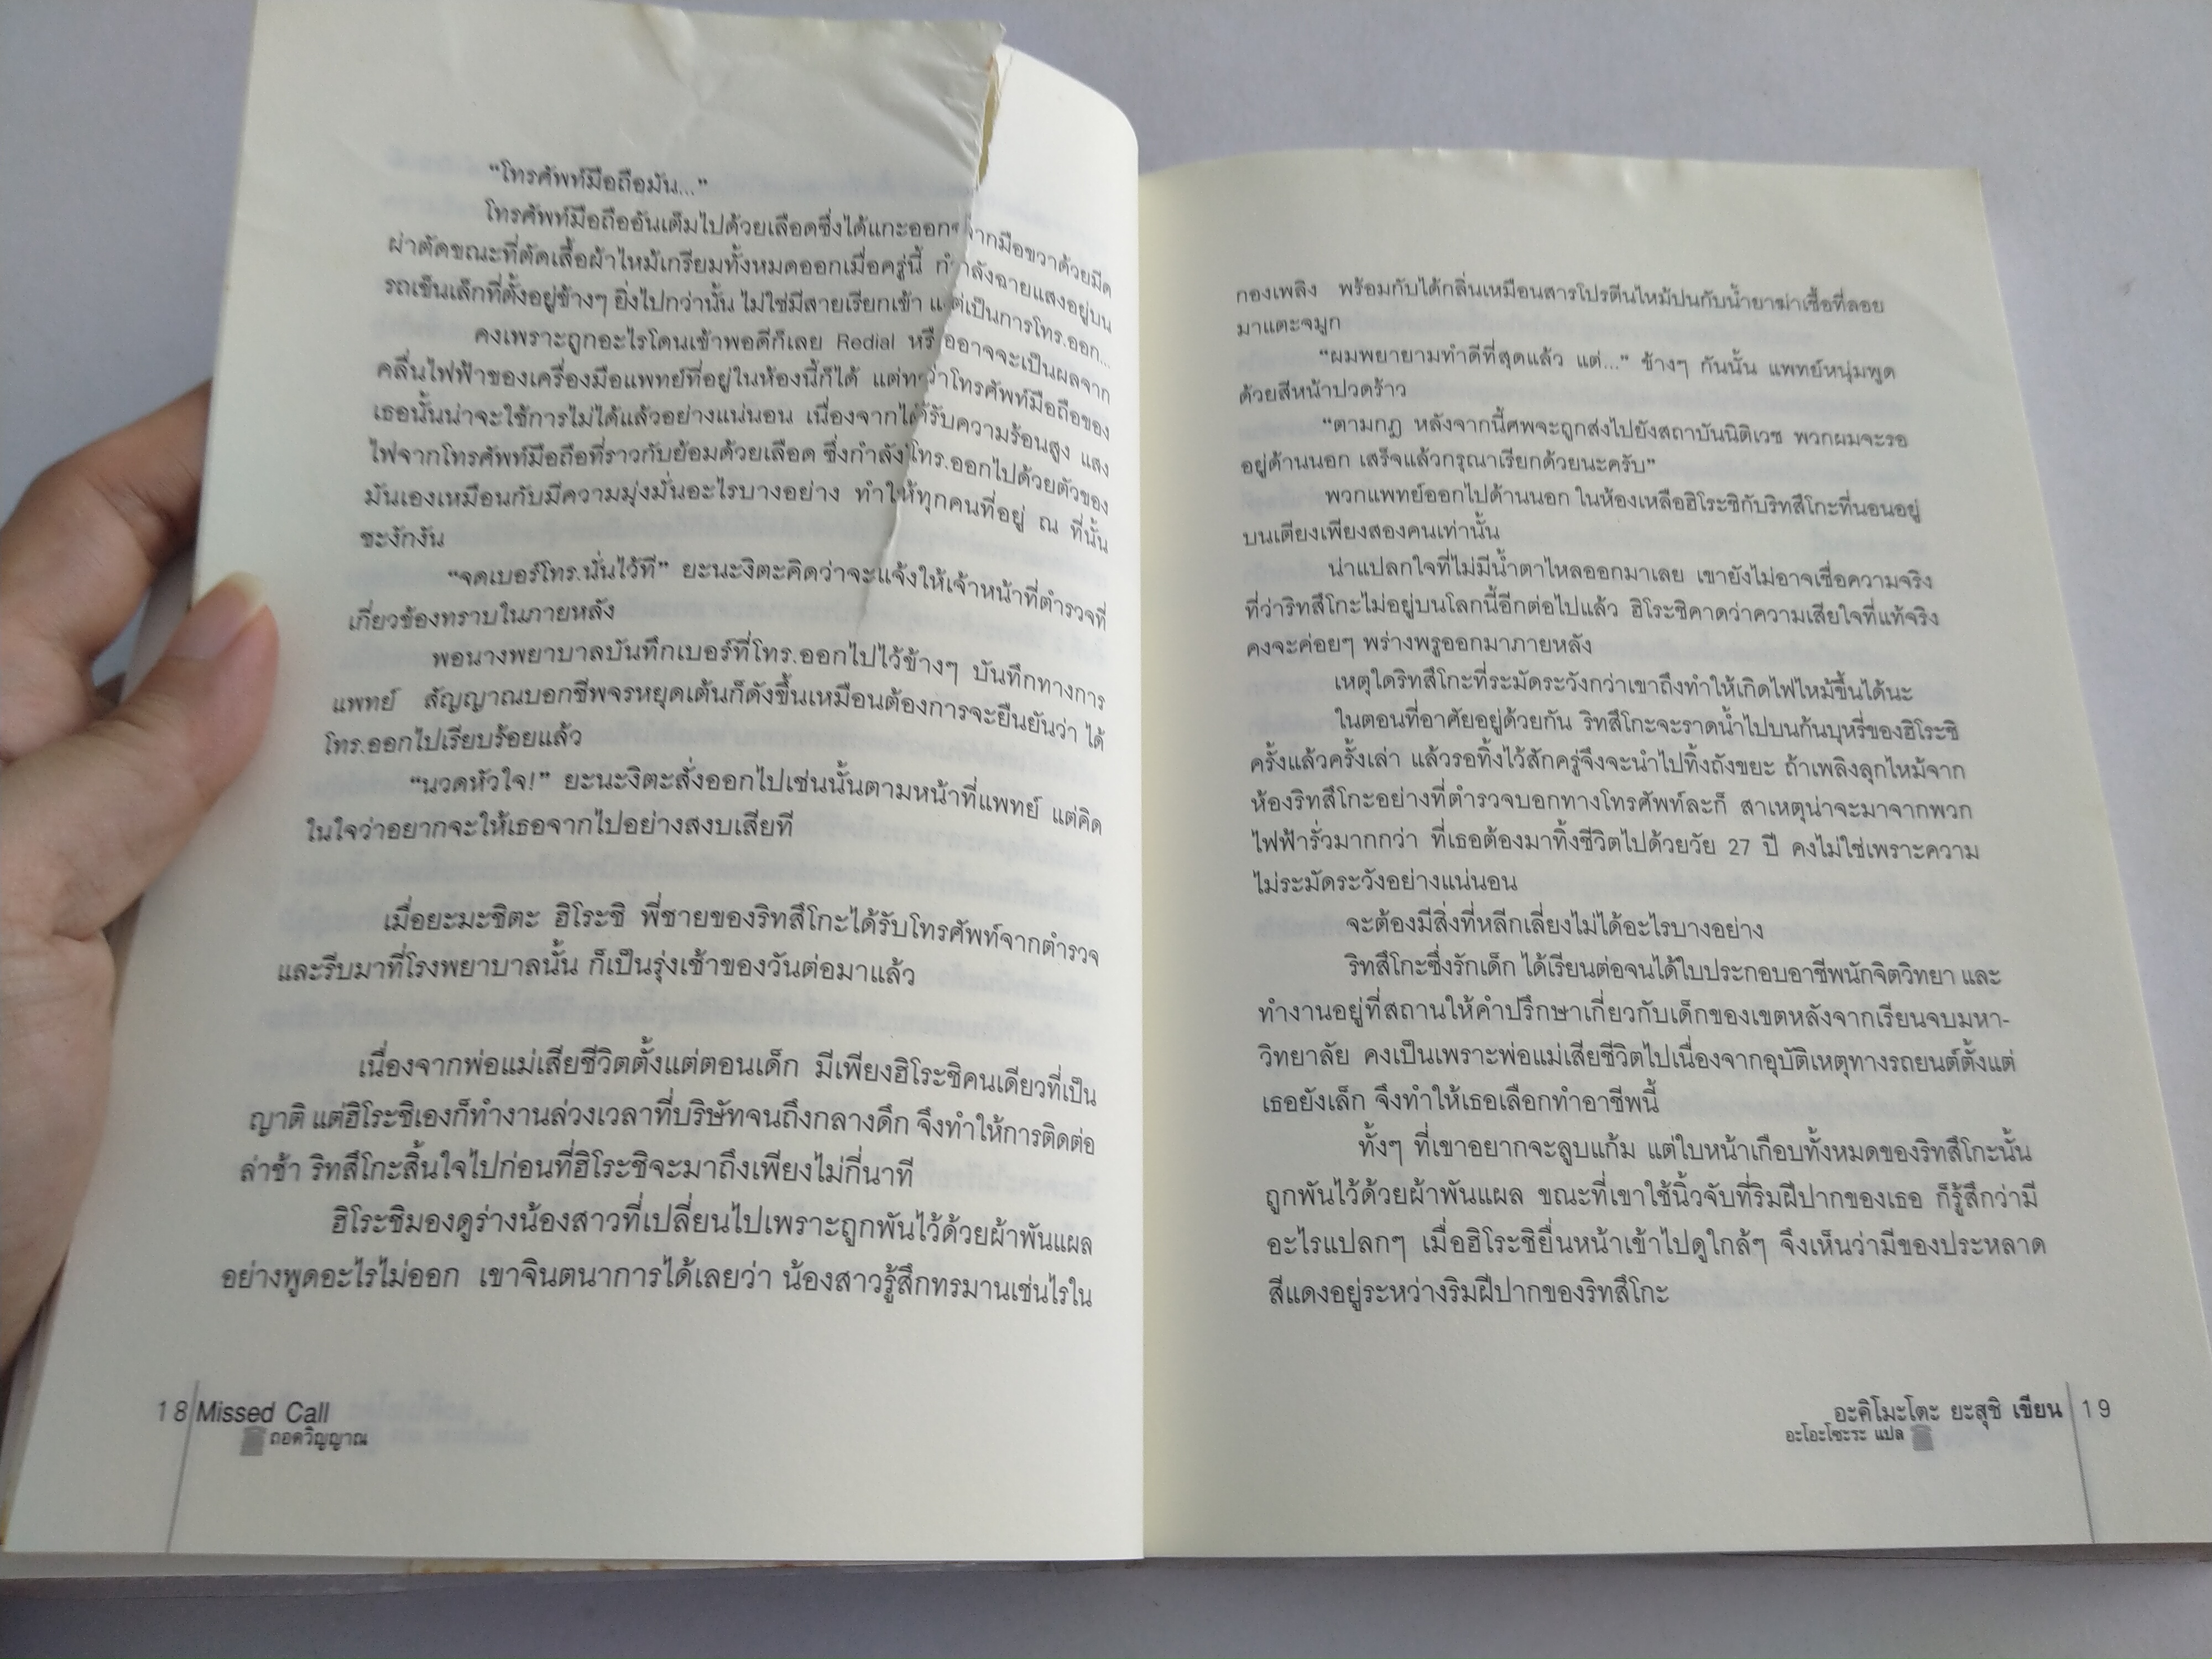 “โทรศัพท์มือถือมัน...”
โทรศัพท์มือถืออันเต็มไปด้วยเลือดซึ่งได้แกะออกจากมือขวาด้วยมีด
ผ่าตัดขณะที่ตัดเสื้อผ้าไหม้เกรียมทั้งหมดออกเมื่อครู่นี้ กำลังฉายแสงอยู่บน
รถเข็นเล็กที่ตั้งอยู่ข้างๆ ยิ่งไปกว่านั้น ไม่ใช่มีสายเรียกเข้า แต่เป็นการโทร.ออก...
คงเพราะถูกอะไรโดนเข้าพอดีก็เลย Redial หรืออาจจะเป็นผลจาก
คลื่นไฟฟ้าของเครื่องมือแพทย์ที่อยู่ในห้องนี้ก็ได้ แต่ทว่าโทรศัพท์มือถือของ
เธอนั้นน่าจะใช้การไม่ได้แล้วอย่างแน่นอน เนื่องจากได้รับความร้อนสูง แสง
ไฟจากโทรศัพท์มือถือที่ราวกับย้อมด้วยเลือด ซึ่งกำลังโทร.ออกไปด้วยตัวของ
มันเองเหมือนกับมีความมุ่งมั่นอะไรบางอย่าง ทำให้ทุกคนที่อยู่ ณ ที่นั้น
ชะงักงัน
“จดเบอร์โทร.นั่นไว้ที” ยะนะงิตะคิดว่าจะแจ้งให้เจ้าหน้าที่ตำรวจที่
เกี่ยวข้องทราบในภายหลัง
พอนางพยาบาลบันทึกเบอร์ที่โทร.ออกไปไว้ข้างๆ บันทึกทางการ
แพทย์ สัญญาณบอกชีพจรหยุดเต้นก็ดังขึ้นเหมือนต้องการจะยืนยันว่า ได้
โทร.ออกไปเรียบร้อยแล้ว
“นวดหัวใจ!” ยะนะงิตะสั่งออกไปเช่นนั้นตามหน้าที่แพทย์ แต่คิด
ในใจว่าอยากจะให้เธอจากไปอย่างสงบเสียที
เมื่อยะมะชิตะ ฮิโระชิ พี่ชายของริทสึโกะได้รับโทรศัพท์จากตำรวจ
และรีบมาที่โรงพยาบาลนั้น ก็เป็นรุ่งเช้าของวันต่อมาแล้ว
เนื่องจากพ่อแม่เสียชีวิตตั้งแต่ตอนเด็ก มีเพียงฮิโระชิคนเดียวที่เป็น
ญาติ แต่ฮิโระชิเองก็ทำงานล่วงเวลาที่บริษัทจนถึงกลางดึก จึงทำให้การติดต่อ
ล่าช้า ริทสึโกะสิ้นใจไปก่อนที่ฮิโระชิจะมาถึงเพียงไม่กี่นาที
ฮิโระชิมองดูร่างน้องสาวที่เปลี่ยนไปเพราะถูกพันไว้ด้วยผ้าพันแผล
อย่างพูดอะไรไม่ออก เขาจินตนาการได้เลยว่า น้องสาวรู้สึกทรมานเช่นไรใน
18 Missed Call
ถอดวิญญาณ
กองเพลิง พร้อมกับได้กลิ่นเหมือนสารโปรตีนไหม้ปนกับน้ำยาฆ่าเชื้อที่ลอย
มาแตะจมูก
“ผมพยายามทำดีที่สุดแล้ว แต่...” ข้างๆ กันนั้น แพทย์หนุ่มพูด
ด้วยสีหน้าปวดร้าว
“ตามกฎ หลังจากนี้ศพจะถูกส่งไปยังสถาบันนิติเวช พวกผมจะรอ
อยู่ด้านนอก เสร็จแล้วกรุณาเรียกด้วยนะครับ”
พวกแพทย์ออกไปด้านนอก ในห้องเหลือฮิโระชิกับริทสึโกะที่นอนอยู่
บนเตียงเพียงสองคนเท่านั้น
น่าแปลกใจที่ไม่มีน้ำตาไหลออกมาเลย เขายังไม่อาจเชื่อความจริง
ที่ว่าริทสึโกะไม่อยู่บนโลกนี้อีกต่อไปแล้ว ฮิโระชิคาดว่าความเสียใจที่แท้จริง
คงจะค่อยๆ พร่างพรูออกมาภายหลัง
เหตุใดริทสึโกะที่ระมัดระวังกว่าเขาถึงทำให้เกิดไฟไหม้ขึ้นได้นะ
ในตอนที่อาศัยอยู่ด้วยกัน ริทสึโกะจะราดน้ำไปบนก้นบุหรี่ของฮิโระชิ
ครั้งแล้วครั้งเล่า แล้วรอทิ้งไว้สักครู่จึงจะนำไปทิ้งถังขยะ ถ้าเพลิงลุกไหม้จาก
ห้องริทสึโกะอย่างที่ตำรวจบอกทางโทรศัพท์ละก็ สาเหตุน่าจะมาจากพวก
ไฟฟ้ารั่วมากกว่า ที่เธอต้องมาทิ้งชีวิตไปด้วยวัย 27 ปี คงไม่ใช่เพราะความ
ไม่ระมัดระวังอย่างแน่นอน
จะต้องมีสิ่งที่หลีกเลี่ยงไม่ได้อะไรบางอย่าง
ริทสึโกะซึ่งรักเด็ก ได้เรียนต่อจนได้ใบประกอบอาชีพนักจิตวิทยา และ
ทำงานอยู่ที่สถานให้คำปรึกษาเกี่ยวกับเด็กของเขตหลังจากเรียนจบมหา-
วิทยาลัย คงเป็นเพราะพ่อแม่เสียชีวิตไปเนื่องจากอุบัติเหตุทางรถยนต์ตั้งแต่
เธอยังเล็ก จึงทำให้เธอเลือกทำอาชีพนี้
ทั้งๆ ที่เขาอยากจะลูบแก้ม แต่ใบหน้าเกือบทั้งหมดของริทสึโกะนั้น
ถูกพันไว้ด้วยผ้าพันแผล ขณะที่เขาใช้นิ้วจับที่ริมฝีปากของเธอ ก็รู้สึกว่ามี
อะไรแปลกๆ เมื่อฮิโระชิยื่นหน้าเข้าไปดูใกล้ๆ จึงเห็นว่ามีของประหลาด
สีแดงอยู่ระหว่างริมฝีปากของริทสึโกะ
อะคิโมะโตะ ยะสุชิ เขียน 19
อะโอะโซะระ แปล